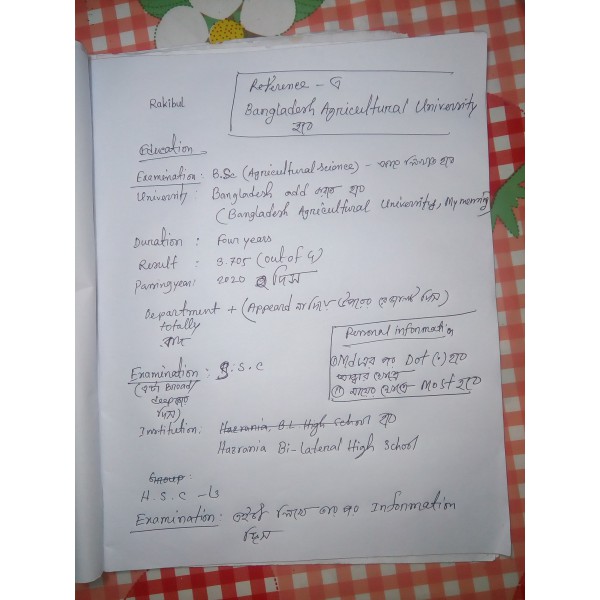 Rakibul
Reference - এ
Bangladesh Agricultural University
হবে
Education
Examination : B.Sc (Agricultural science) - হবে
University : Bangladesh add করতে হবে
(Bangladesh Agricultural University, Mymensing
Duration : Four years
Result : 3.705 (out of 4)
Passing year: 2020 দিস
Department + (Appeard না দিয়ে দিস)
totally
বাদ
Personal information
① Md এর পর Dot (.) হবে
② মায়ের Most হবে
Examination : S.S.C
(এটা Broad/
deep করে
দিস)
Institution: Hazrania, B.L High School হবে
Hazrania Bi-lateral High School
Group:
H.S.C - ও
Examination: Information
দিস